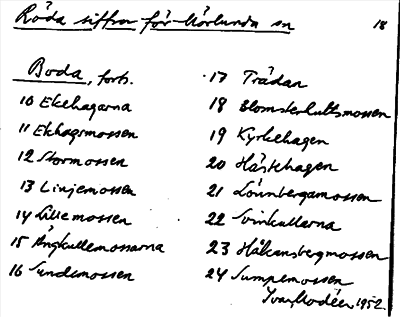 Röda siffror för Mörlunda sn 18
Boda, forts.
10 Ekehagarna
11 Ekhagsmossen
12 Stormossen
13 Linjemossen
14 Lillemossen
15 Ängkullemossarna
16 Sundemossen
17 Trädan
18 Blomsterhultsmossen
19 Kyrkehagen
20 Hästehagen
21 Lönnbergamossen
22 Svinkullarna
23 Håkansbergmossen
24 Sumpemossen
Ivar Modéer 1952.